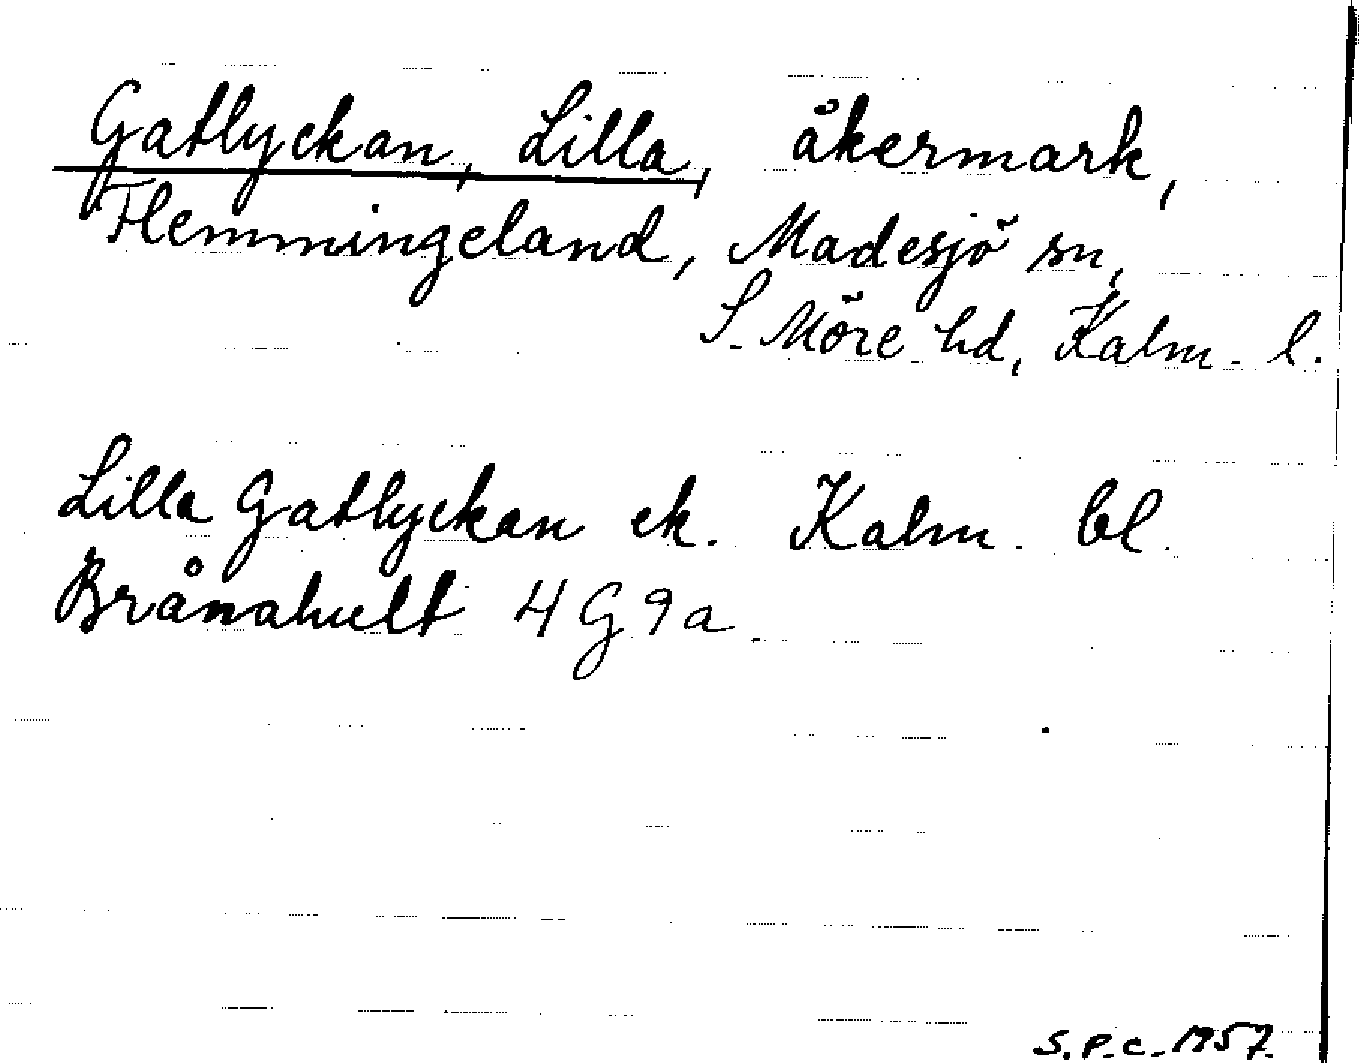 Gatlyckan, Lilla, åkermark,
Flemmingeland, Madesjö sn,
S. Möre hd, Kalm. l.
Lilla Gatlyckan ek. Kalm. bl.
Brånahult 4G9a
S.P.C. 1957